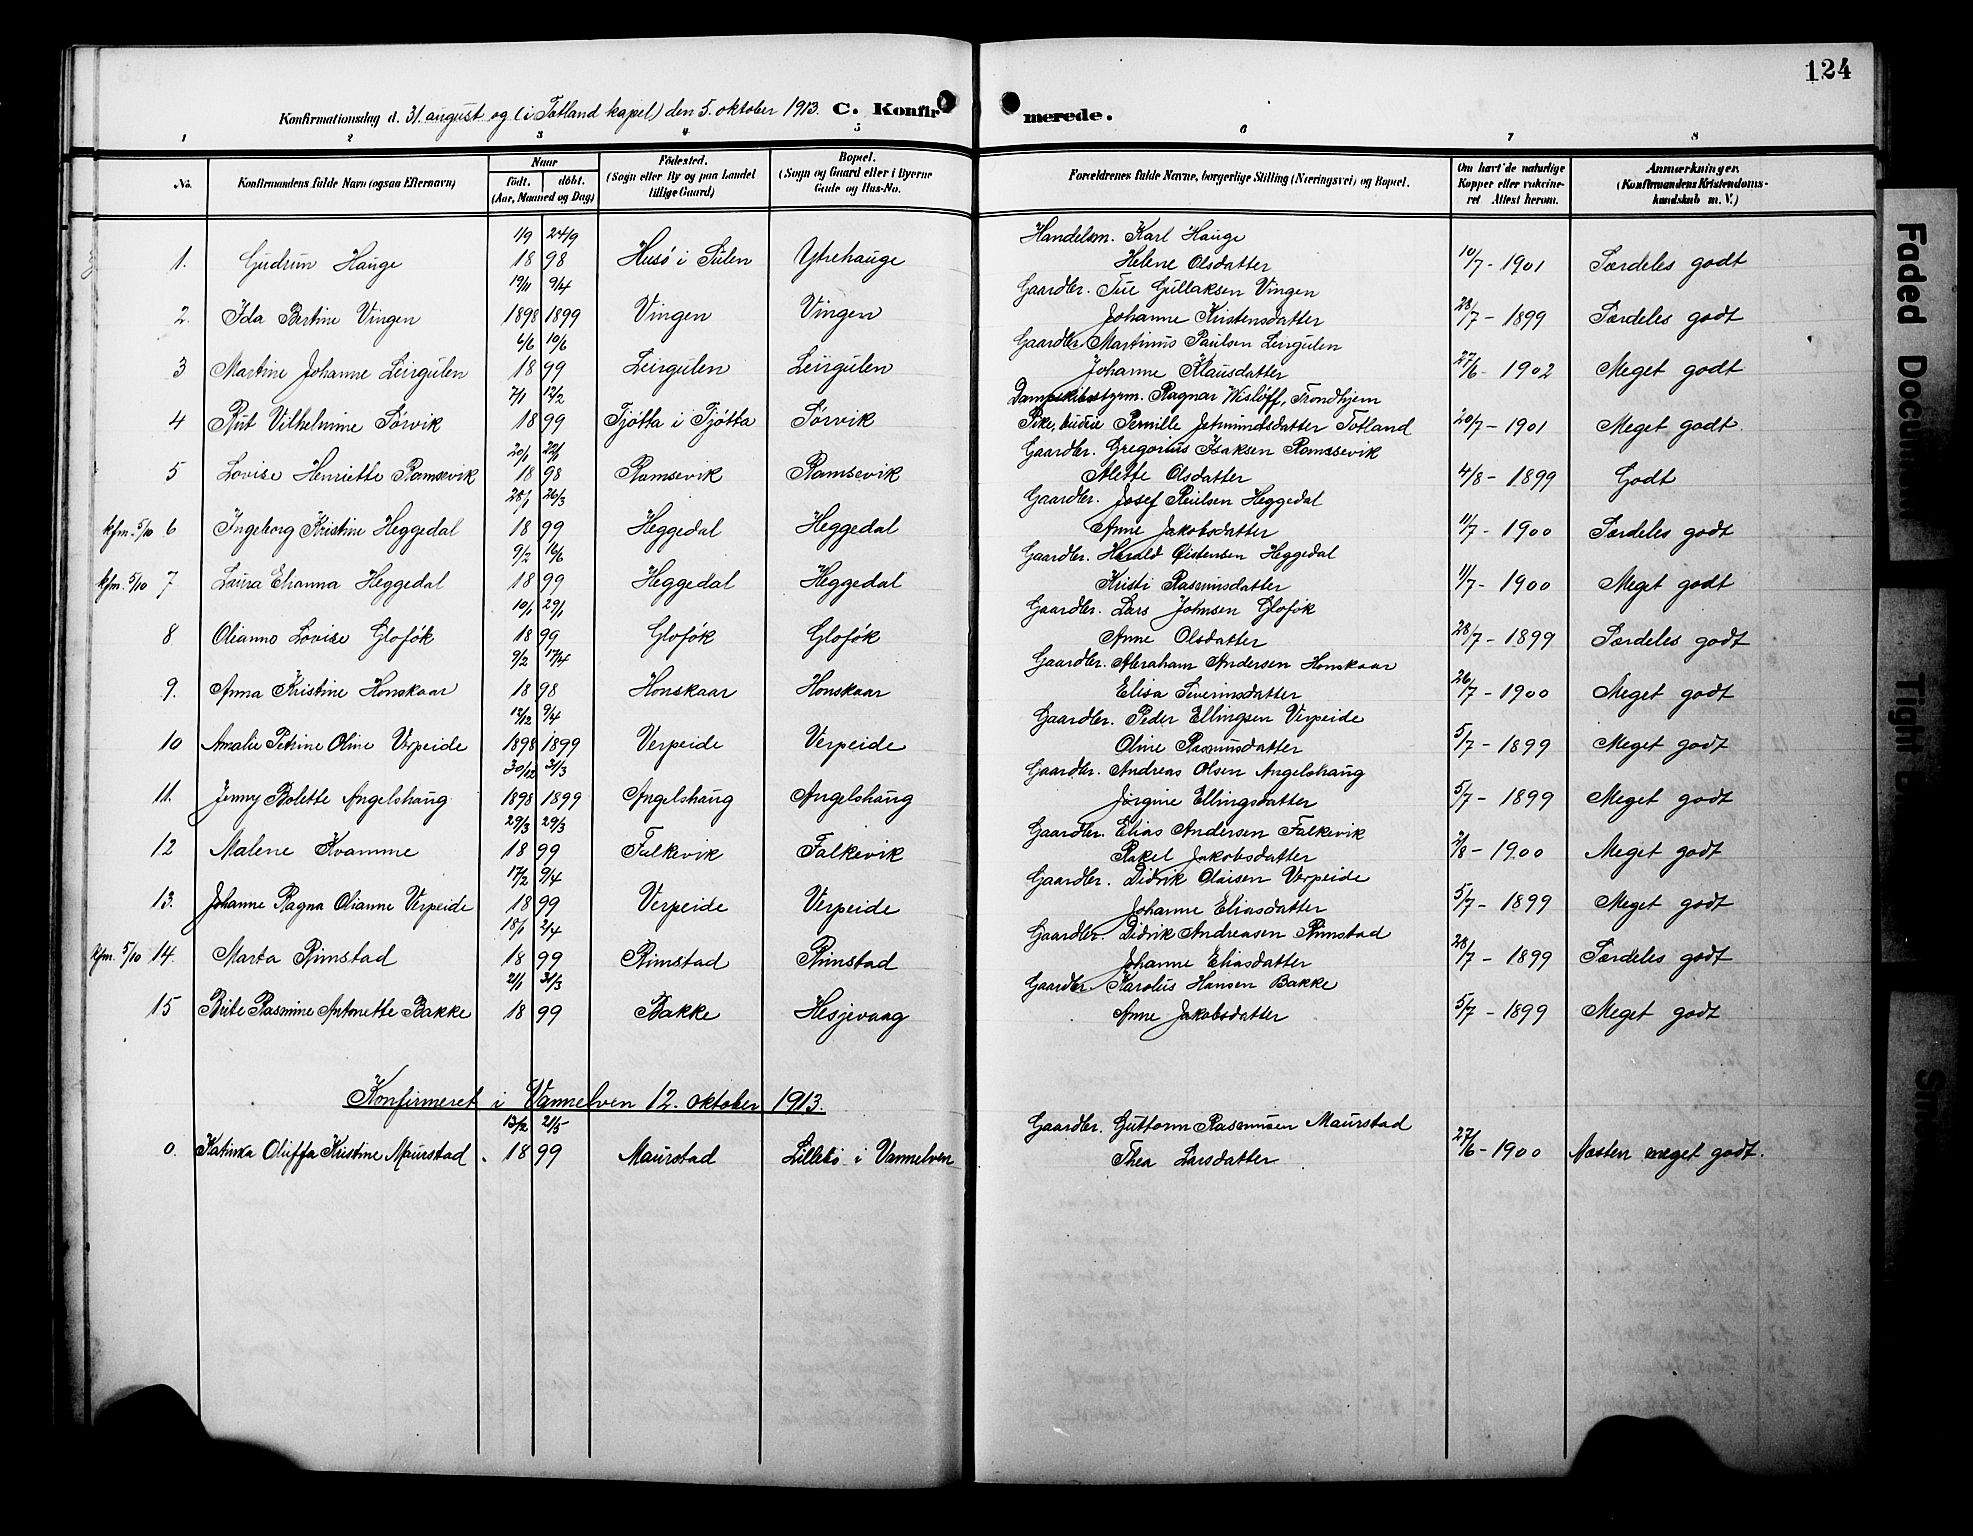 124
Konfirmationsdag d. 31. august og (i Totland kapel) den 5. oktober 1913. C. Konfirmerede.
1 2 3 4 5 6 7 8
No. Konfirmandens fulde Navn (ogsaa Efternavn) Naar født. døbt. (Aar, Maaned og Dag) Fødested. (Sogn eller By og paa Landet tillige Gaard) Bopæl. (Sogn og Gaard eller i Byerne Gade og Hus-No. Forældrenes fulde Navne, borgerlige Stilling (Næringsvei) og Bopæl. Om havt de naturlige Kopper eller vakcineret Attest herom. Anmærkninger. (Konfirmandens Kristendomskundskab m. V.)
1/9 24/9 Handelsm. Karl Hauge
1. Gudrun Hauge 18 98 Husø i Sulen Ytrehauge Helene Olsdatter 10/7 - 1901 Særdeles godt
19/11 9/4 Gaardbr. Tue Gullaksen Vingen
2. Ida Bertine Vingen 1898 1899 Vingen Vingen Johanne Kristensdatter 28/7 - 1899 Særdeles godt
6/6 10/6 Gaardbr. Martinus Paulsen Leirgulen
3 Martine Johanne Leirgulen 18 99 Leirgulen Leirgulen Johanne Klausdatter 27/6 - 1902 Meget godt
7/1 12/2 Dampskibsstyrm. Ragnar Wisløff, Trondhjem
4 Rut Vilhelmine Sørvik 18 99 Tjøtta i Tjøtta Sørvik Pike, budeie Pernille Jetmundsdatter Totland 20/7 - 1901 Meget godt.
20/1 22/1 Gaardbr. Gregorius Isaksen Ramssevik
5 Lovise Henriette Ramsevik 18 98 Ramsevik Ramsevik Alette Olsdatter 4/8 - 1899 Godt
28/1 26/3 Gaardbr. Josef Paulsen Heggedal
kfm. 5/10 6 Ingeborg Kristine Heggedal 18 99 Heggedal Heggedal Anne Jakobsdatter 11/7 - 1900 Særdeles godt
9/2 16/6 Gaardbr. Harald Øistensen Heggedal
kfm. 5/10 7 Laura Elianna Heggedal 18 99 Heggedal Heggedal Kristi Rasmusdatter 11/7 - 1900 Meget godt
10/1 29/1 Gaardbr. Lars Johnsen Gloføk
8 Olianna Lovise Gloføk 18 99 Gloføk Gloføk Anne Olsdatter 28/7 - 1899 Særdeles godt
9/2 17/4 Gaardbr. Abraham Andersen Honskaar
9. Anna Kristine Honskaar 18 98 Honskaar Honskaar Elisa Severinsdatter 26/7 - 1900 Meget godt
12/12 9/4 Gaardbr. Peder Ellingsen Verpeide
10 Amalie Petrine Oline Verpeide 1898 1899 Verpeide Verpeide Oline Rasmusdatter 5/7 - 1899 Meget godt
30/12 31/3 Gaardbr. Andreas Olsen Angelshaug
11. Jenny Bolette Angelshaug 1898 1899 Angelshaug Angelshaug Jørgine Ellingsdatter 5/7 - 1899 Meget godt
29/3 29/3 Gaardbr. Elias Andersen Falkevik
12 Malene Kvamme 18 99 Falkevik Falkevik Rakel Jakobsdatter 2/8 - 1900 Meget godt
17/2 9/4 Gaardbr. Didrik Olaisen Verpeide
13. Johanne Ragna Olianne Verpeide 18 99 Verpeide Verpeide Johanne Eliasdatter 5/7 - 1899 Meget godt
18/1 2/4 Gaardbr. Didrik Andreasen Rimstad
kfm. 5/10 14. Marta Rimstad 18 99 Rimstad Rimstad Johanne Eliasdatter 28/7 - 1899 Særdeles godt
2/1 31/3 Gaardbr. Karolus Hansen Bakke
15 Brite Rasmine Antonette Bakke 18 99 Bakke Hesjevaag Anne Jakobsdatter 5/7 - 1899 Meget godt
Konfirmeret i Vannelven 12. oktober 1913.
13/2 21/5 Gaardbr. Guttorm Rasmusen Maurstad
0. Katinka Oluffa Kristine Maurstad 18 99 Maurstad Lillebø i Vannelven Thea Larsdatter 27/6 - 1900 Næsten meget godt.
Faded Document
Tight